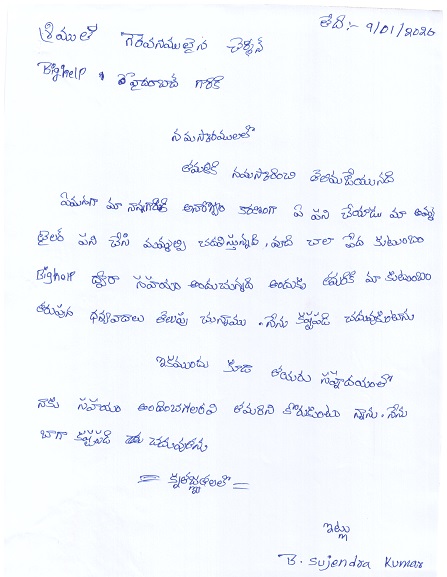 తేది:- 9/01/2026
శ్రీములతో గౌరవనీయులైన చైర్మన్
Bighelp హైదరాబాద్ గారికి
నమస్కారములతో
తమరికి నమస్కారించి తెలియజేయునది
ఏమనగా మా నాన్నగారికి అనారోగ్యం కారణంగా ఏ పని చేయాడు మా అమ్మ
టైలర్ పని చేసి మమ్మల్ని చదివిస్తున్నది, మాది చాలా పేద కుటుంబం
Bighelp ద్వారా సహాయం అందుచున్నది అందుకు తమరికి మా కుటుంబం
తరుపున ధన్యవాదాలు తెలుపు చున్నాము. నేను కష్టపడి చదువుకుంటాను
ఇకముందు కూడా తమరు సహృదయంతో
నాకు సహాయం అందించగలరని తమరిని కోరుకుంటు న్నాను. నేను
బాగా కష్టపడి చదువుతాను
= కృతజ్ఞతలతో =
ఇట్లు
B. Sujendra Kumar